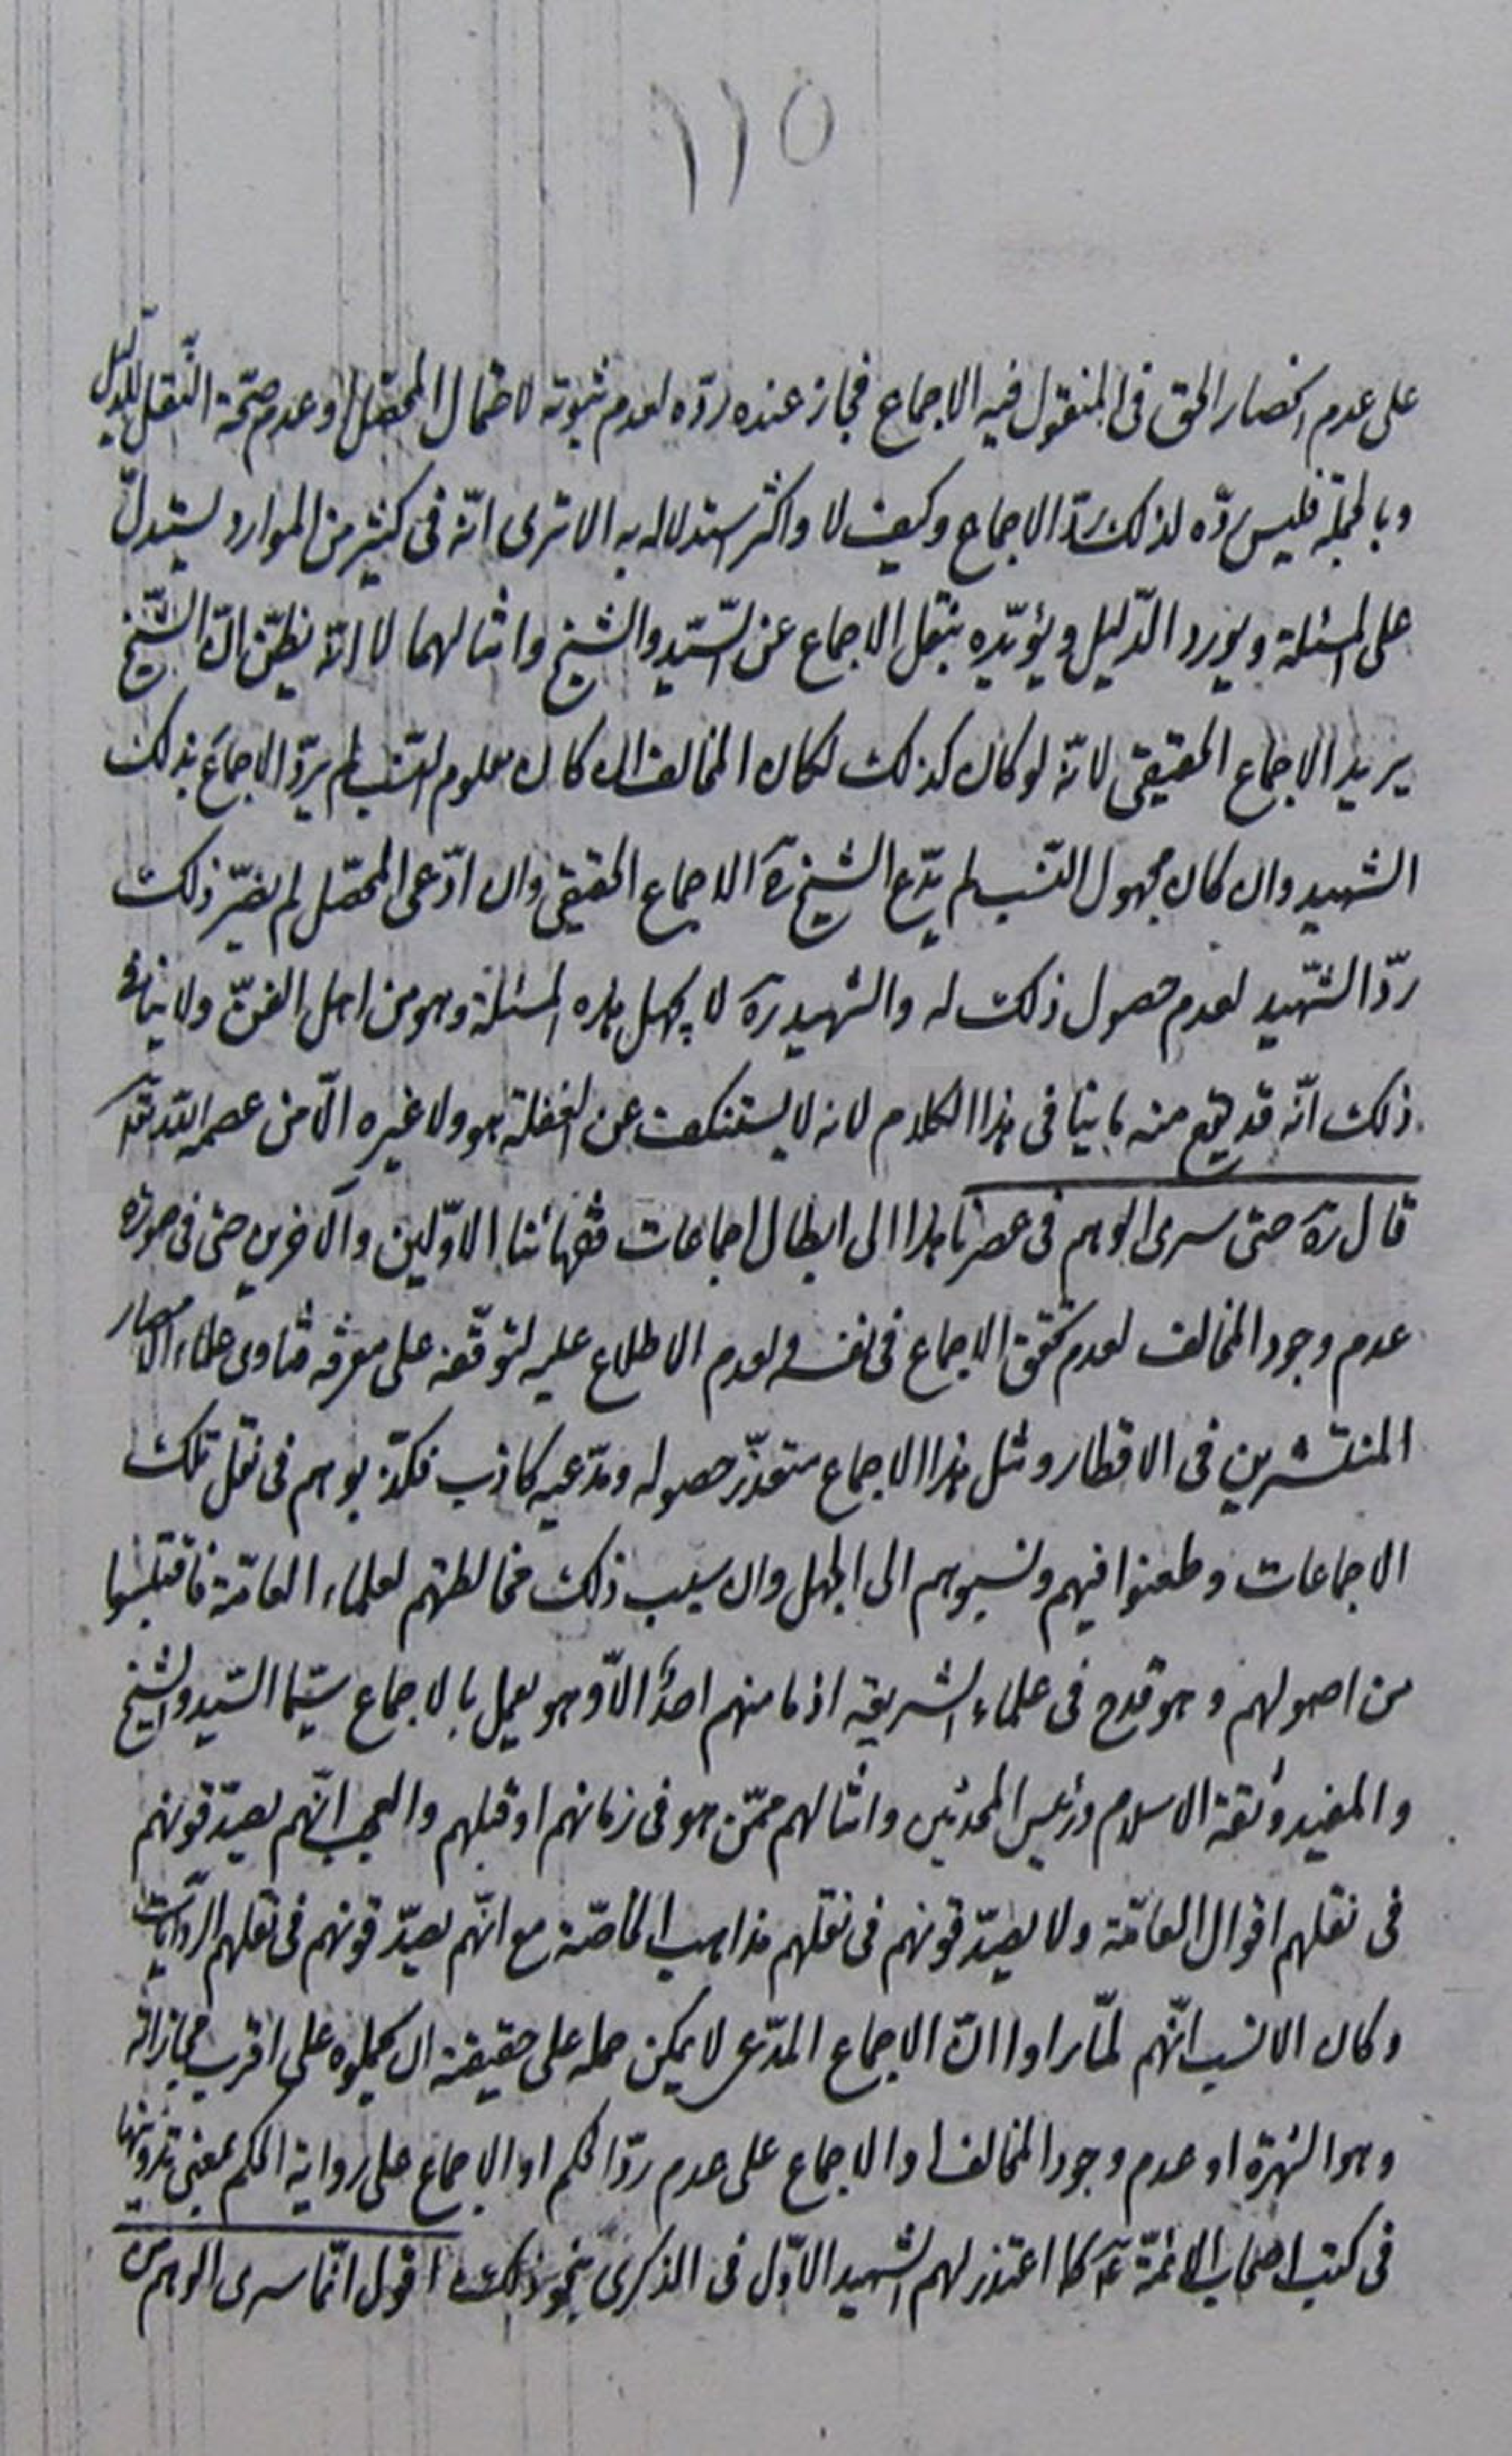 ١١٥
على عدم انحصار الحق فى المنقول فيه الاجماع فجاز عنده ردّه لعدم ثبوته لاحتمال المحصّل او عدم صحّة النّقل للدّليل
وبالجملة فليس ردّه لذلك ردّ الاجماع وكيف لا واكثر استدلاله به الا ترى انّه فى كثير من الموارد يستدلّ
على المسئلة ويورد الدّليل ويؤيّده بنقل الاجماع عن السّيّد والشيخ وامثالهما لا انّه يظنّ انّ الشّيخ
يريد الاجماع الحقيقى لانّه لو كان كذلك لكان المخالف ان كان معلوم النّسب لم يردّ الاجماع بذلك
الشهيد وان كان مجهول النّسب لم يدّع الشيخ ره الاجماع الحقيقى وان ادّعى المحصّل لم يضرّ ذلك
ردّ الشّهيد لعدم حصول ذلك له والشهيد ره لا يجهل هذه المسئلة وهو من اهل الفنّ ولا ينافى
ذلك انّه قد يقع منه ما ينافى هذا الكلام لانه لا يستنكف عن الغفلة هو ولا غيره الّا من عصمه اللّه تعالى
قال ره حتى سرى الوهم فى عصرنا هذا الى ابطال اجماعات فقهائنا الاوّلين والآخرين حتى فى صورة
عدم وجود المخالف لعدم تحقق الاجماع فى نفسه ولعدم الاطلاع عليه لتوقّفه على معرفة فتاوى علماء الامصار
المنتشرين فى الاقطار ومثل هذا الاجماع متعذّر حصوله ومدّعيه كاذب فكذّبوهم فى نقل تلك
الاجماعات وطعنوا فيهم ونسبوهم الى الجهل وان سبب ذلك مخالطتهم لعلماء العامّة فاقتبسوا
من اصولهم وهو قدح فى علماء الشريعة اذ ما منهم احدٌ الّا وهو يعمل بالاجماع سيّما السّيد والشيخ
والمفيد وثقة الاسلام ورئيس المحدثين وامثالهم ممّن هو فى زمانهم او قبلهم والعجب انّهم يصدّقونهم
فى نقلهم اقوال العامّة ولا يصدّقونهم فى نقلهم مذاهب الخاصّة مع انّهم يصدّقونهم فى نقلهم الروايات
وكان الانسب انّهم لمّا راوا انّ الاجماع المدّعى لا يمكن حمله على حقيقته ان يحملوه على اقرب مجازاته
وهو الشهرة او عدم وجود المخالف او الاجماع على عدم ردّ الحكم او الاجماع على رواية الحكم بمعنى تدوينها
فى كتب اصحاب الائمّة ع كما اعتذر لهم الشهيد الاوّل فى الذكرى بنحو ذلك اقول انّما سرى الوهم من